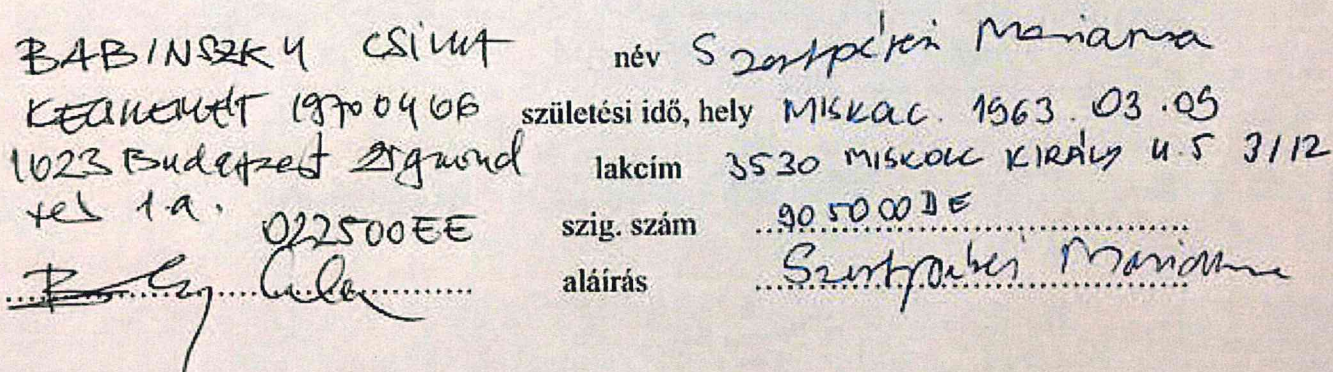 BABINSZKY CSILLA név Szentpéteri Marianna
KECSKEMÉT 1970 04 06 születési idő, hely MISKOLC. 1963. 03. 09
1023 Budapest Zsigmond lakcím 3530 MISKOLC KIRÁLY U. 5 3/12
tér 1.a.
022500EE szig. szám 905000DE
aláírás Szentpéteri Marianna